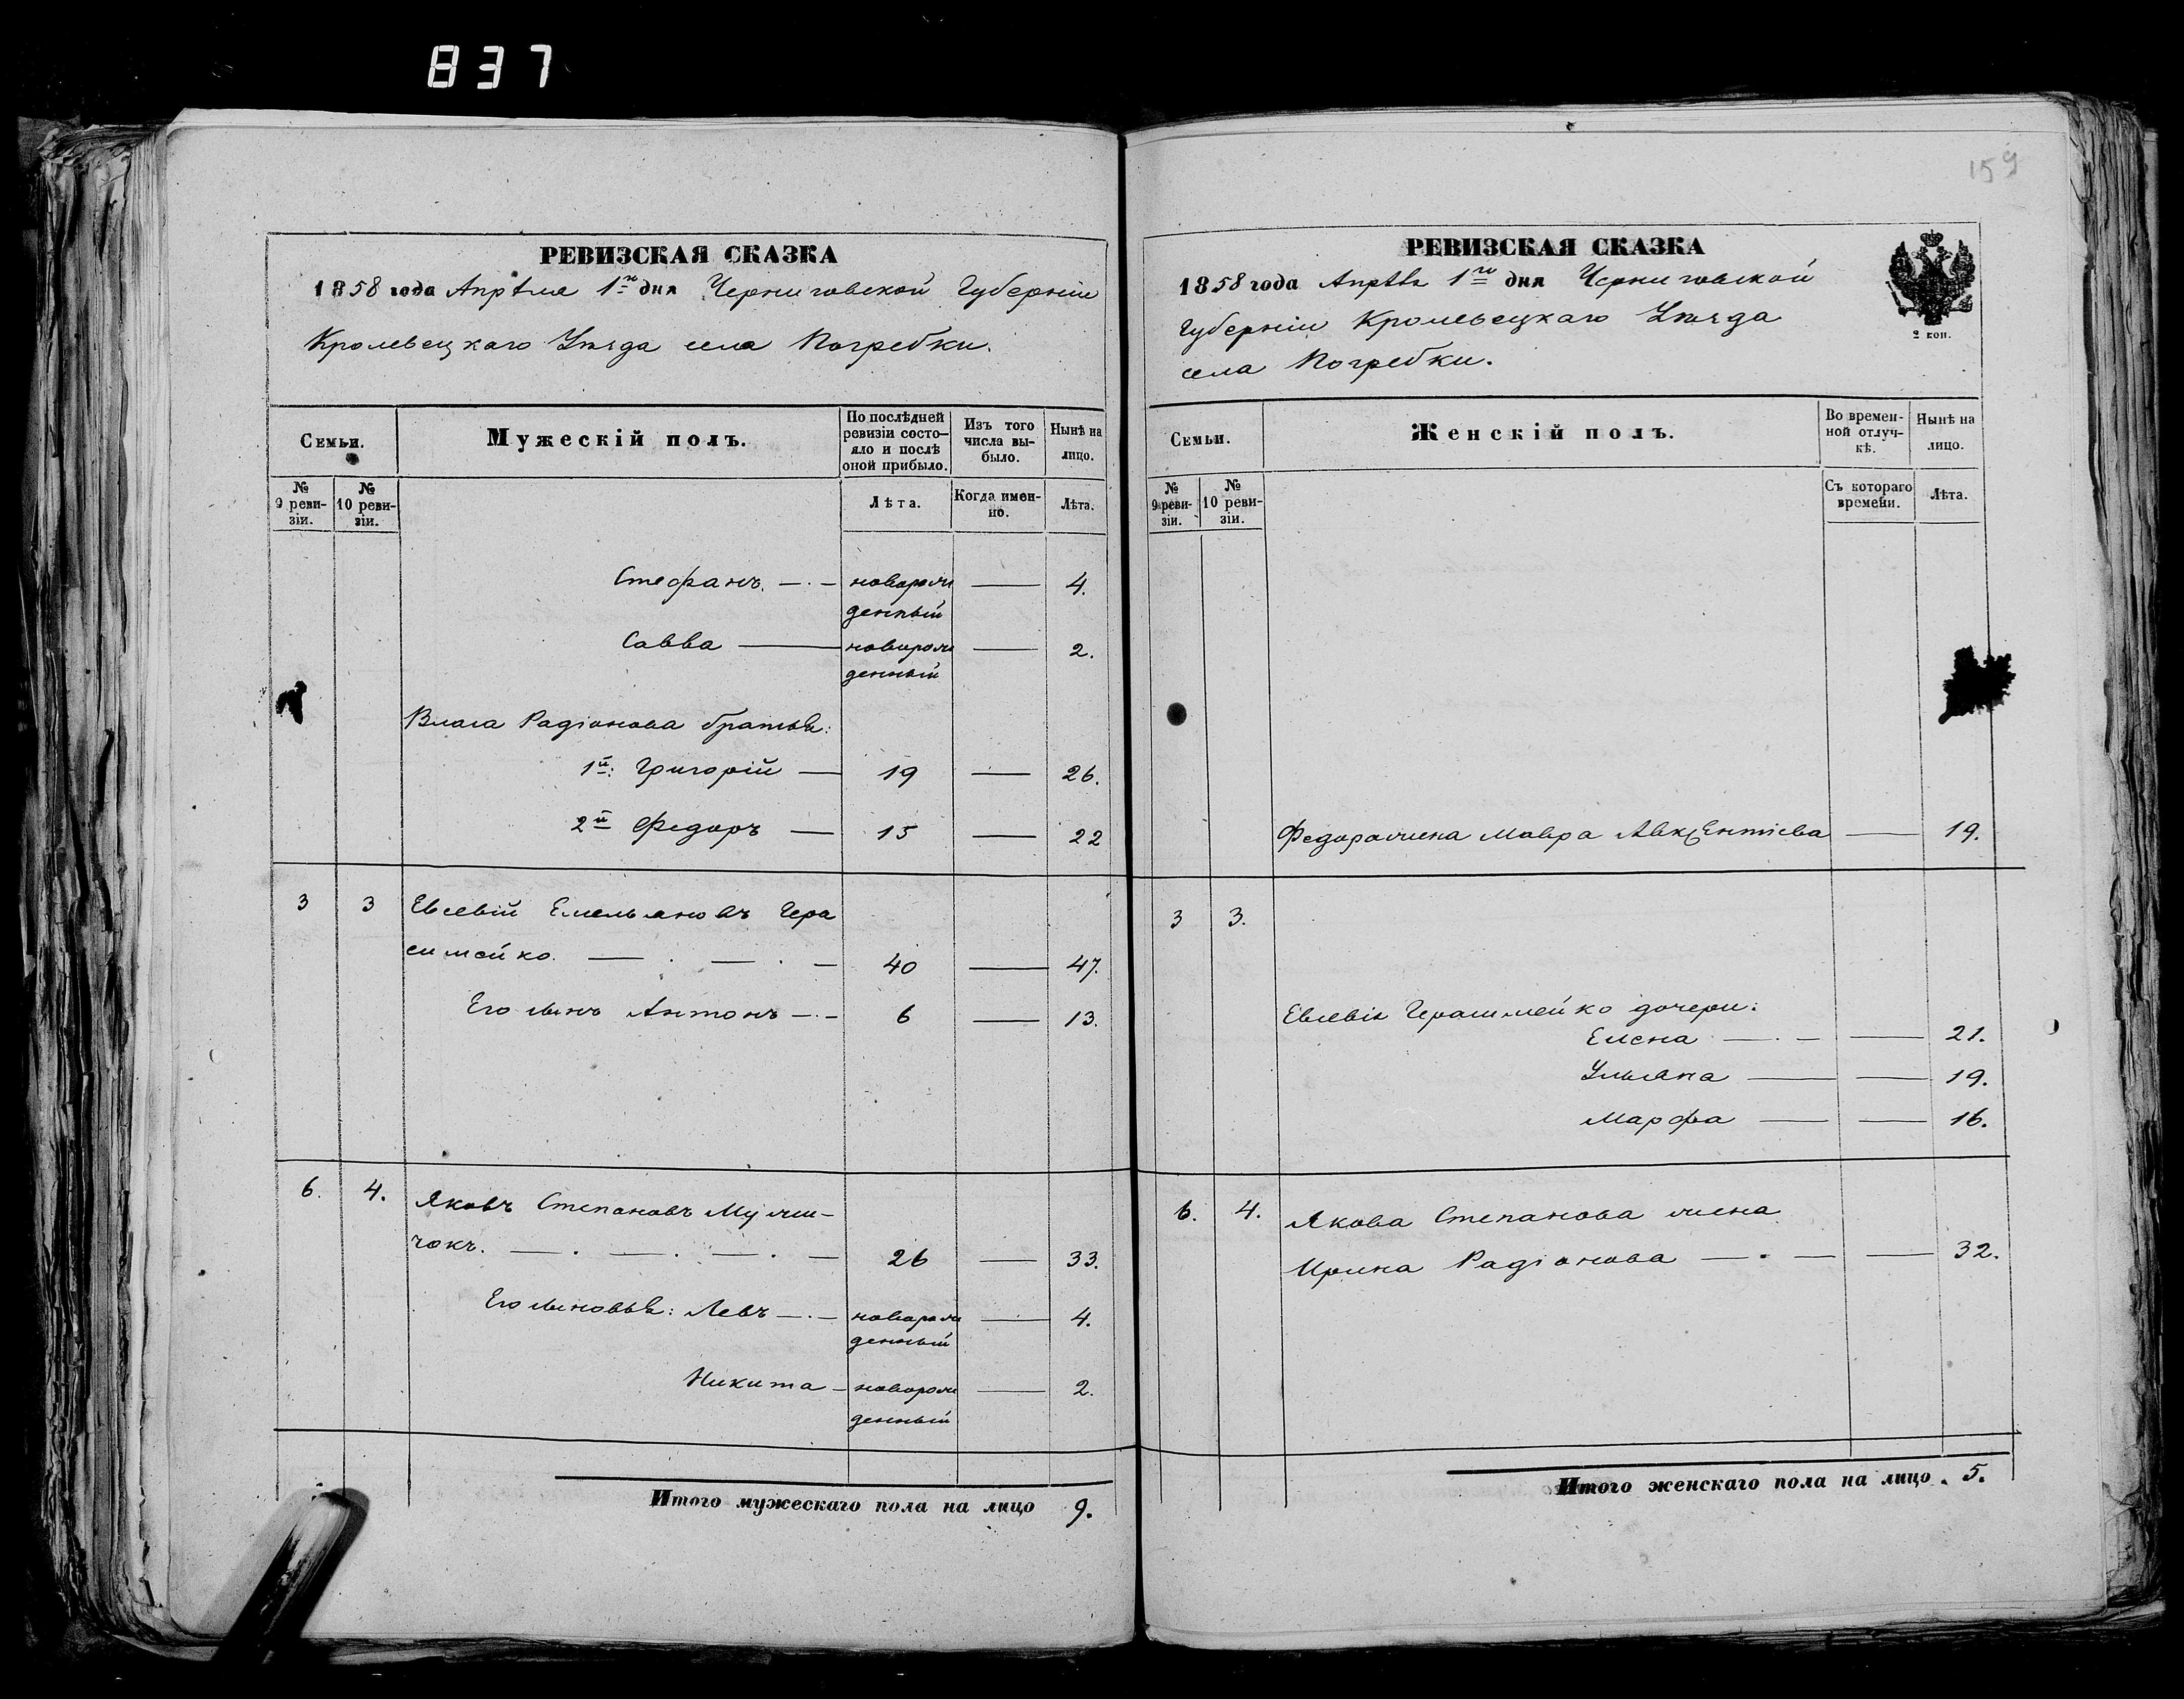 837
159
РЕВИЗСКАЯ СКАЗКА
1858 года Апрѣля 1го дня Черниговской Губерніи
Кролевецкаго Уѣзда села Погребки.
Семьи.
Мужескій полъ.
По послѣдней ревизіи состояло и послѣ оной прибыло.
Изъ того числа выбыло.
Нынѣ на лицо.
№ 9 ревизіи.
№ 10 ревизіи.
Лѣта.
Когда именно.
Лѣта.
Стефанъ. — новорож — 4.
денный
Савва — новорож — 2.
денный
Власа Радіонова братья:
1й: Григорій — 19 — 26.
2й Федоръ — 15 — 22
3 3 Евсевій Емельяновъ Гера
симейко. — 40 — 47.
Его сынъ Антонъ — 6 — 13.
6. 4. Яковъ Степановъ Мужи-
чокъ. — 26 — 33.
Его сыновья: Левъ — новорож — 4.
денный
Никита — новорож — 2.
денный
Итого мужескаго пола на лицо 9.
РЕВИЗСКАЯ СКАЗКА
1858 года Апрѣля 1го дня Черниговской
Губерніи Кролевецкаго Уѣзда
села Погребки.
2 коп.
Семьи.
Женскій полъ.
Во временной отлучкѣ.
Нынѣ на лицо.
№ 9 ревизіи.
№ 10 ревизіи.
Съ котораго времени.
Лѣта.
Федора жена Мавра Авксентіева — 19.
3 3.
Евсевія Герасимейко дочери:
Елена — 21.
Ульяна — 19.
Марфа — 16.
6. 4. Якова Степанова жена
Ирина Радіонова — 32.
Итого женскаго пола на лицо. 5.